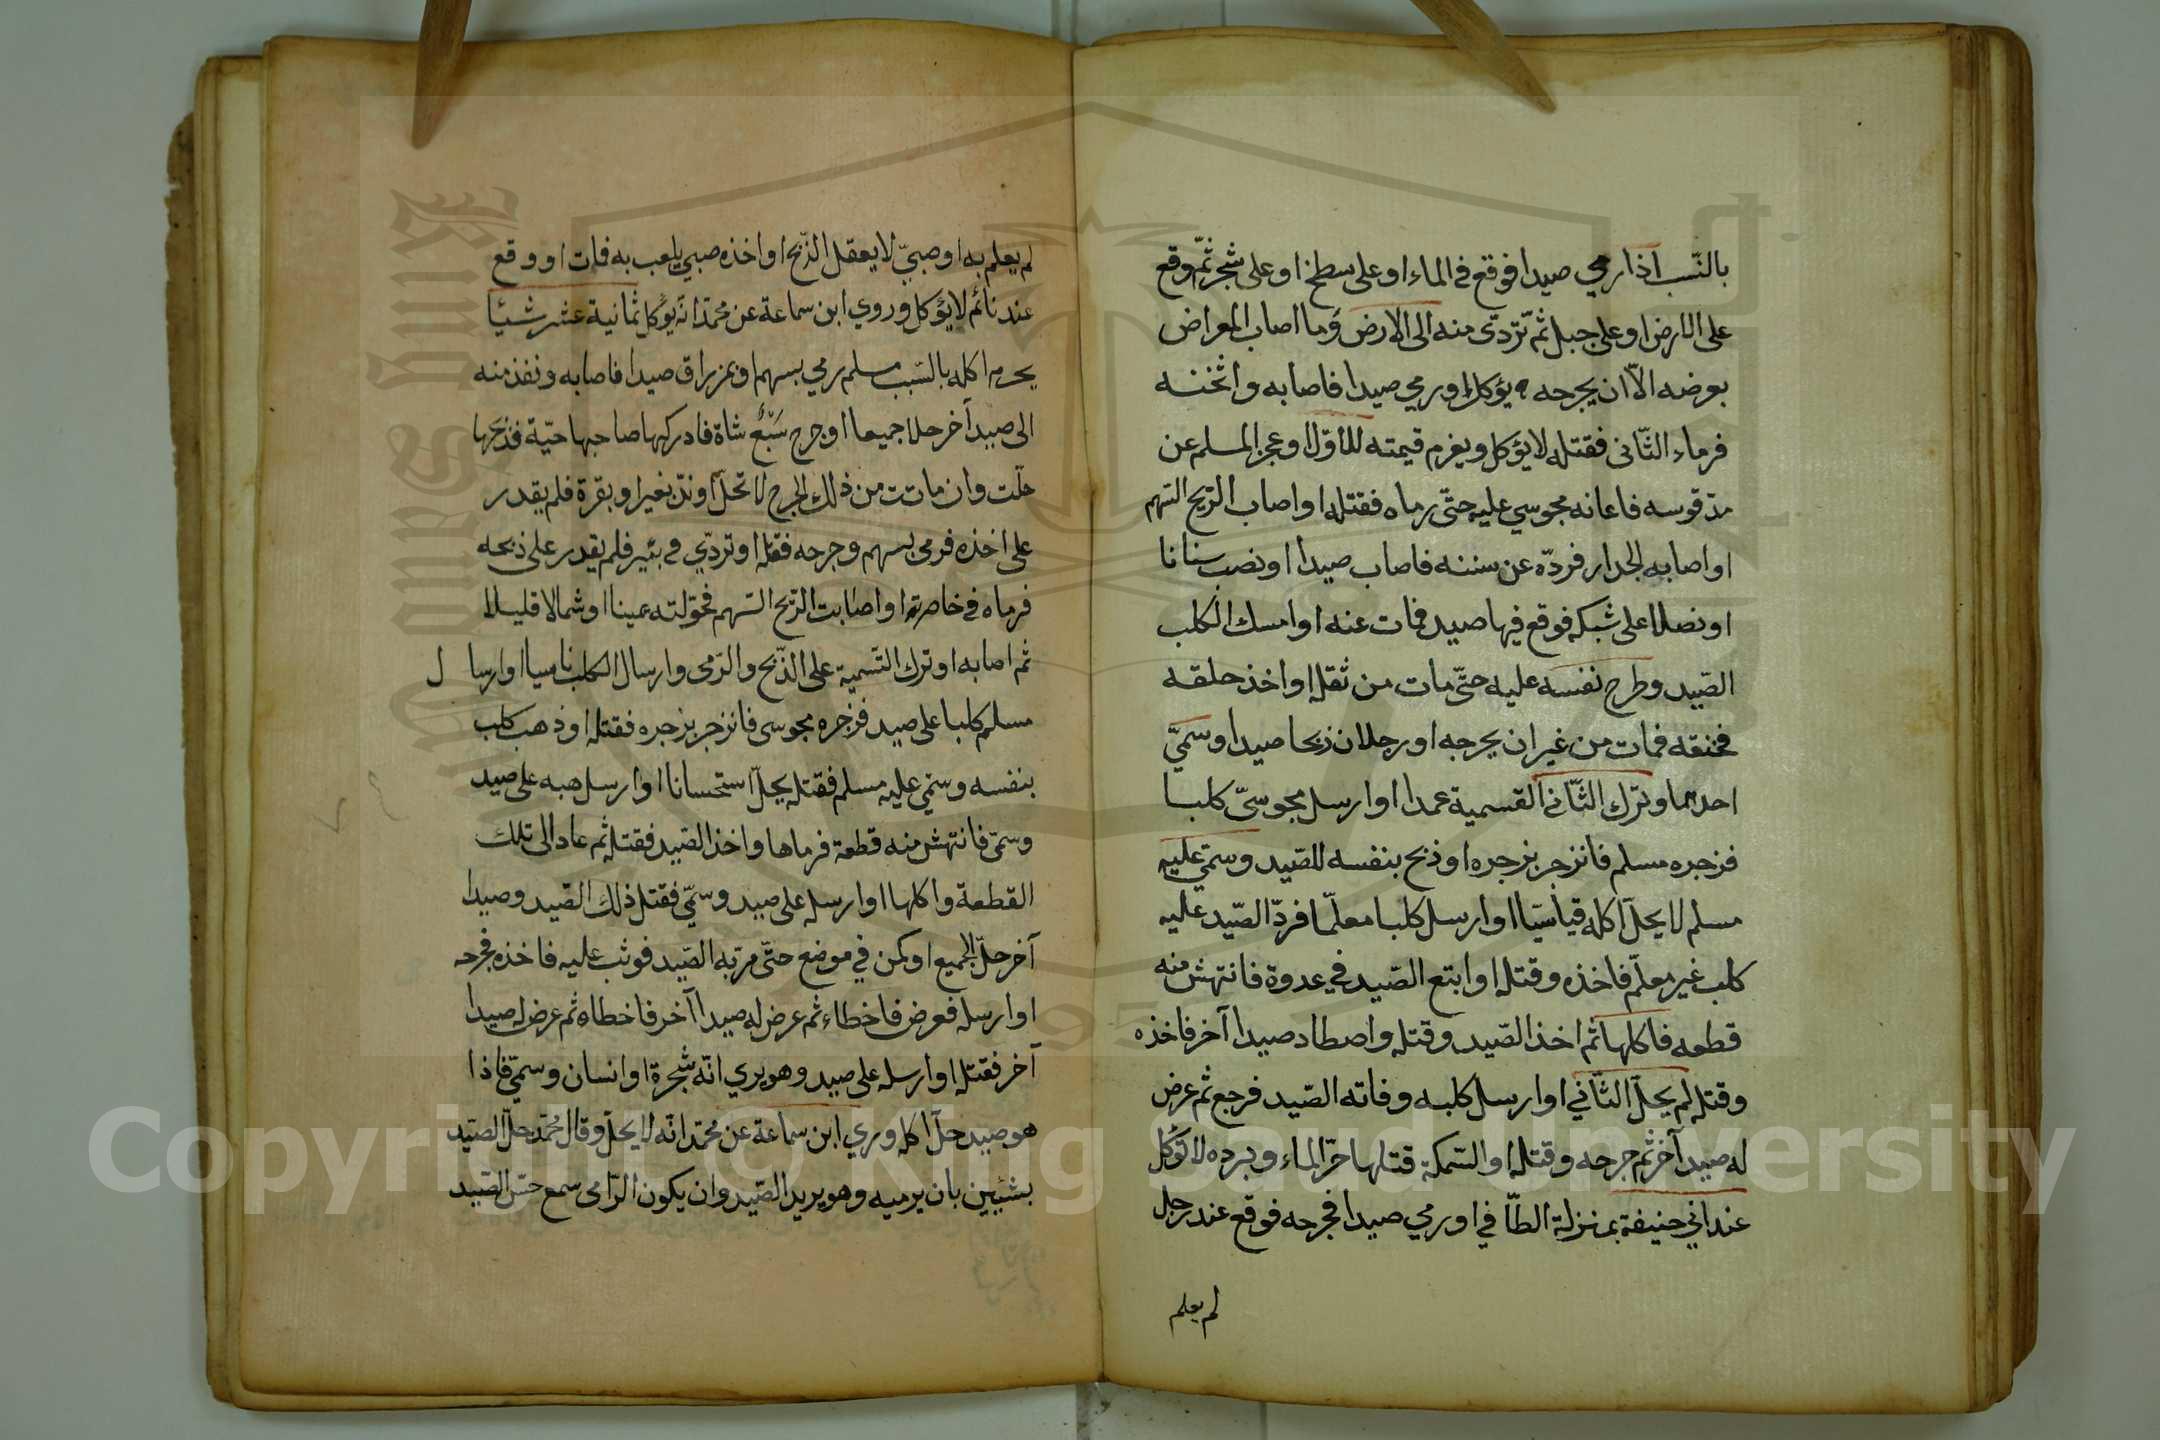 بالنّسب اذا رمي صيدا فوقع في الماء او على سطح او على شجر ثمّ وقع
على الارض او على جبل ثم تردّى منه الى الارض وما اصاب المعراض
بعرضه الاّ ان يجرحه يؤكل او رمي صيدا فاصابه واثخنه
فرماه الثّانى فقتله لا يؤكل ويغرم قيمته للاوّل او عجز المسلم عن
مدّ قوسه فاعانه مجوسي عليه حتّى رماه فقتله او اصاب الرّيح السّهم
او اصابه الجدار فردّه عن سننه فاصاب صيدا او نصب سنانا
او نصلا على شبكه فوقع فيها صيد فمات عنه او امسك الكلب
الصّيد وطرح نفسه عليه حتّى مات من ثقله او اخذ حلقه
فخنقه فمات من غير ان يجرحه او رجلان ذبحا صيدا وسمّيّ
احدهما وترك الثّانى القسمية عمدا او ارسل مجوسيّ كلبا
فزجره مسلم فانزجر بزجره او ذبح بنفسه للصّيد وسمّي عليه
مسلم لا يحلّ اكله قياسيّا او ارسل كلبا معلّما فردّ الصّيد عليه
كلب غير معلّم فاخذه وقتله او ابتع الصّيد في عدوة فانتهش منه
قطعه فاكلها ثم اخذ الصّيد وقتله واصطاد صيدا آخر فاخذه
وقتله لم يحلّ الثّاني او ارسل كلبه وفاته الصّيد فرجع ثم عرض
له صيد آخر ثم جرحه وقتله او السّمكة قتلها حرّ الماء وبرده لا تؤكل
عند ابي حنيفة بمنزلة الطّافي او رمي صيدا فجرحه فوقع عند رجل
لم يعلم
لم يعلم به او صبيّ لا يعقل الذّبح او اخذه صبي يلعب به فمات او وقع
عند نائم لا يؤكل وروي ابن سماعة عن محمّد انّه يؤكل ثمانية عشر شيئا
يحرم اكله بالسّبب مسلم رمي بسهم او بمزراق صيدا فاصابه ونفذ منه
الى صيد آخر حلا جميعا او جرح سَبُعٌ شاة فادركها صاحبها حيّة فذبحها
حلّت وان ماتت من ذلك الجرح لا تحلّ او ندّ بغير او بقرة فلم يقدر
على اخذه فرمى بسهم وجرحه فقتله او تردّي في بئير فلم يقدر على ذبحه
فرماه في خاصرته او اصابت الرّيح السّهم فحوّلته يمينا او شمالا قليلا
ثم اصابه او ترك التّسمية على الذّبح والرّمى وارسال الكلب ناسيا او ارسا ل
مسلم كلبا على صيد فزجره مجوسى فانزجر بزجره فقتله او ذهب كلب
بنفسه وسمّي عليه مسلم فقتله يحلّ استحسانا او ارسل صبه على صيد
وسمّى فانتهش منه قطعة فرماها واخذ الصّيد فقتله ثم عاد الى تلك
القطعة واكلها او ارسله على صيد وسمّي فقتل ذلك الصّيد وصيدا
آخر حلّ الجميع او كمن في موضع حتّى مرّ به الصّيد فوثب عليه فاخذه فجرحه
او ارسله فعرض فاخطاء ثم عرض له صيدا آخر فاخطاه ثم عرض له صيدا
آخر فقتله او ارسله على صيد وهو يري انّه شجرة او انسان وسمّي فاذا
هو صيد حلّ اكله وري ابن سماعة عن محمّد انّه لا يحلّ وقال محمّد حلّ الصّيد
بشيئين بان يرميه وهو يريد الصّيد وان يكون الرّامى سمع حسّ الصّيد
Copyright © King Saud University